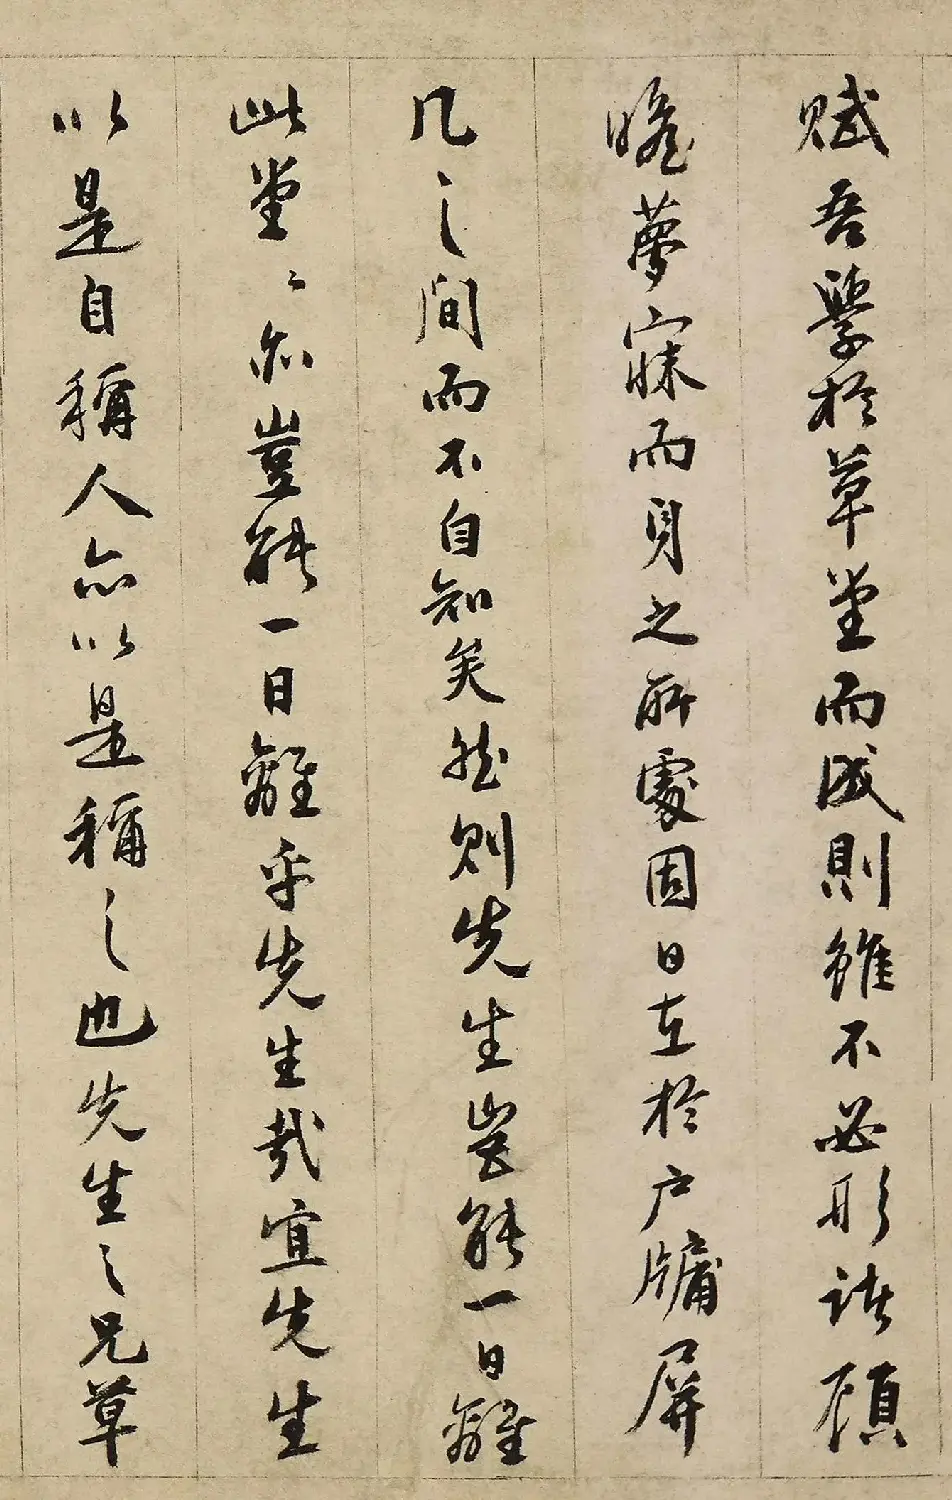 賦吾學於草堂而成則雖不必形諸顧
瞻夢寐而身之所處固日在於户牖屏
几之間而不自知矣然則先生豈能一日離
此堂〻亦豈能一日離乎先生哉宜先生
以是自稱人亦以是稱之也先生之兄草